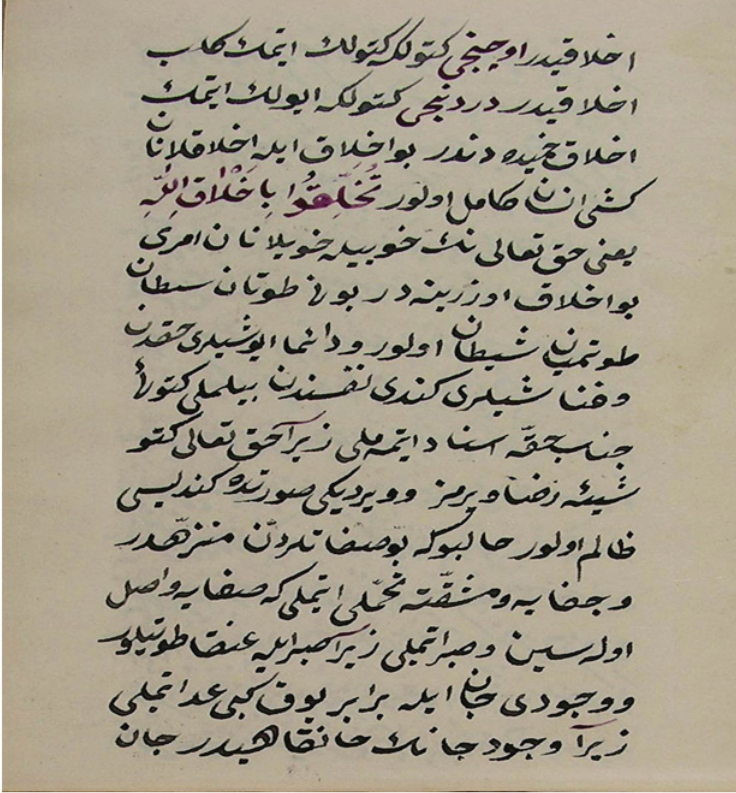 اخلاقيدر اوچنجى كتولكه كتولك ايتمك كلب
اخلاقيدر دردنجى كتولكه ايولك ايتمك
اخلاق حميده دندر بو اخلاق ايله اخلاقلانان
كشى انسان كامل اولور تَخَلَّقُوا بِاَخْلَاقِ اللّٰهِ
يعنى حق تعالى نك خوييله خويلانان امرى
بو اخلاق اوزرينه در بونى طوتان سلطان
طوتميان شيطان اولور و دائما ايو شيلرى حقدن
و فنا شيلرى كندى نفسندن بيلملى كتولكى
جناب حقّه اسناد ايتمه ملى زيرا حق تعالى كتو
شيئه رضا ويرمز و ويرديكى صورتده كنديسى
ظالم اولور حالبوكه بو صفاتلردن منزّهدر
و جفايه و مشقّته تحمّلى ايتملى كه صفايه واصل
اوله سين و صبر ايتملى زيرا صبر ايله عنقا طوتيلور
و وجودى جان ايله برابر يوق كبى عد ايتملى
زيرا وجود جانك خانقاهيدر جان